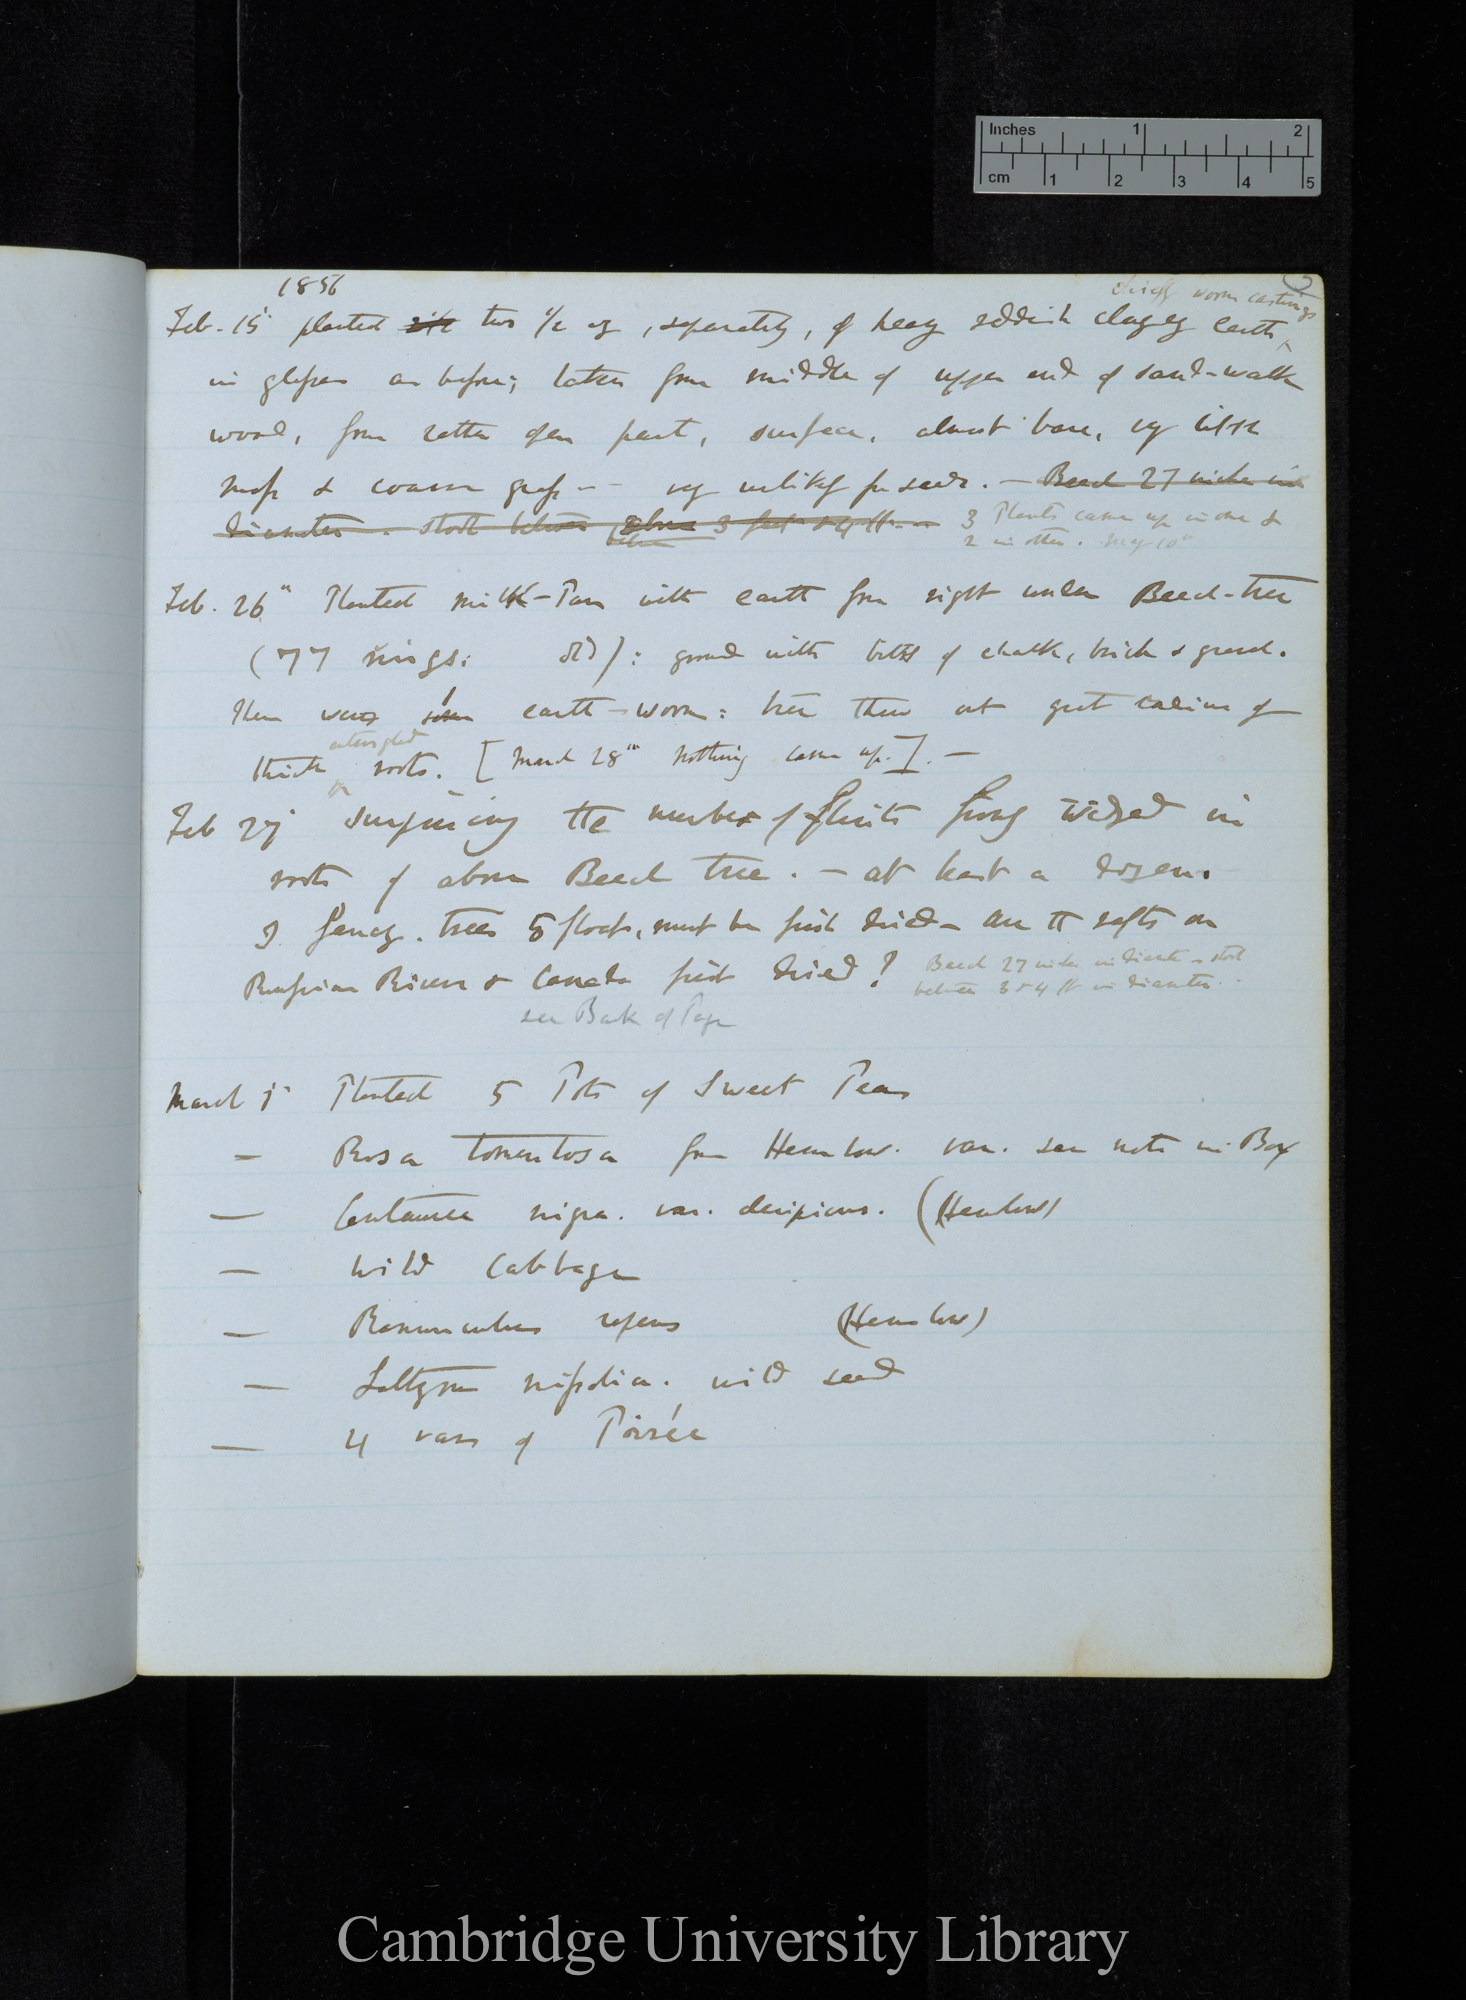 Inches 1 2
cm 1 2 3 4 5
1856
chiefly worm castings
Feb. 15 planted two 1/2 oz, separately, of heavy reddish clayey earth
in glasses as before; taken from middle of upper end of sand-walk
wood, from rather open part, surface, almost bare, very little
moss & coarse grass -- very unlikely for seeds. — Beech 27 inches in
diameter. stool between 3 feet & 4 ft. —
3 Plants came up in one &
2 in other. May 10th
Feb. 26th Planted milk-Pan with earth from right under Beech-tree
(77 rings old): ground with bits of chalk, brick & gravel.
There were earth-worms: tree threw out great calices of
entangled
thick roots. [March 28th Nothing came up.]. —
Feb 27 Surprising the number of flints firmly wedged in
roots of above Beech tree. — at least a dozen.
I fancy. trees to float, must be first dried — Are the rafts on
Russian Rivers & Canada first dried?
Beech 27 inches in diameter — stool
between 3 & 4 ft in diameter.
see Back of Page
March 1st Planted 5 Pots of Sweet Peas
— Rosa tomentosa from Henslow. var. see note in Box
— Centaurea nigra. var. decipiens. (Henslow)
— Wild Cabbage
— Ranunculus repens (Henslow)
— Lathyrus nissolia. wild seed
— 4 vars of Poirée
Cambridge University Library